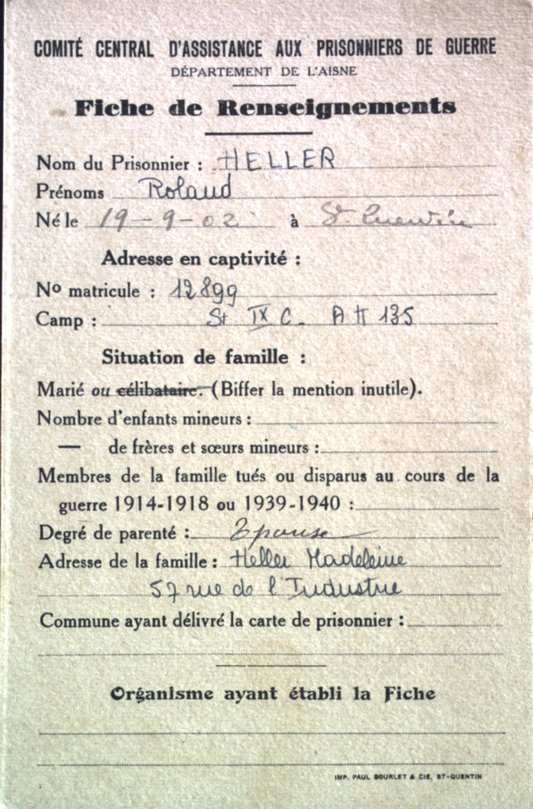 COMITÉ CENTRAL D'ASSISTANCE AUX PRISONNIERS DE GUERRE
DÉPARTEMENT DE L'AISNE
Fiche de Renseignements
Nom du Prisonnier : HELLER
Prénoms Roland
Né le 19-9-02 à St Quentin
Adresse en captivité :
No matricule : 12899
Camp : St IX C. A H 135
Situation de famille :
Marié ou célibataire. (Biffer la mention inutile).
Nombre d'enfants mineurs :
— de frères et sœurs mineurs :
Membres de la famille tués ou disparus au cours de la
guerre 1914-1918 ou 1939-1940 :
Degré de parenté : Epouse
Adresse de la famille : Heller Madeleine
57 rue de l'Industrie
Commune ayant délivré la carte de prisonnier :
Organisme ayant établi la Fiche
IMP. PAUL BOURLET & CIE, ST-QUENTIN